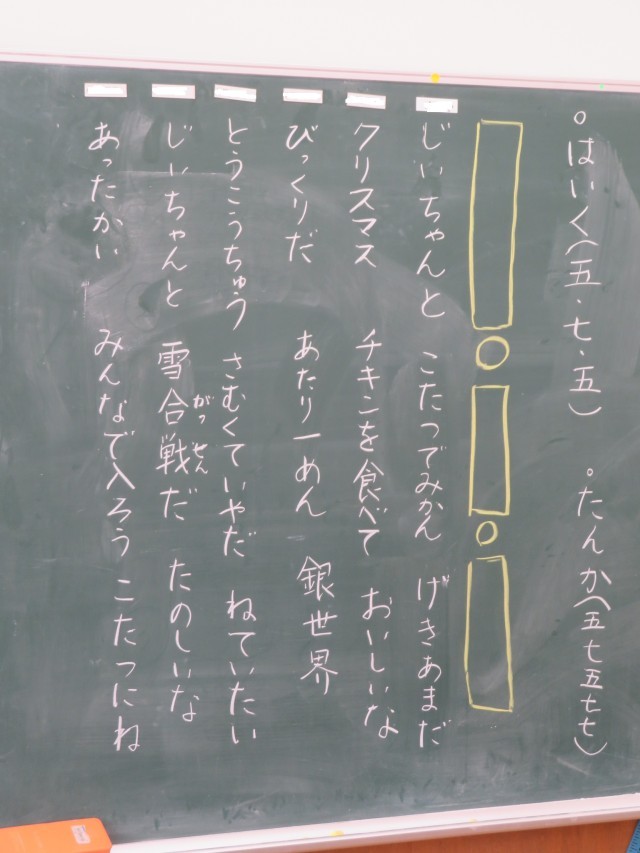 。はいく(五・七・五) 。たんか(五七五七七)
じいちゃんと こたつでみかん げきあまだ
クリスマス チキンを食べて おいしいな
びっくりだ あたり一めん 銀世界
とうこうちゅう さむくていやだ ねていたい
じいちゃんと 雪合戦だ たのしいな
がっせん
あったかい みんなで入ろう こたつにね